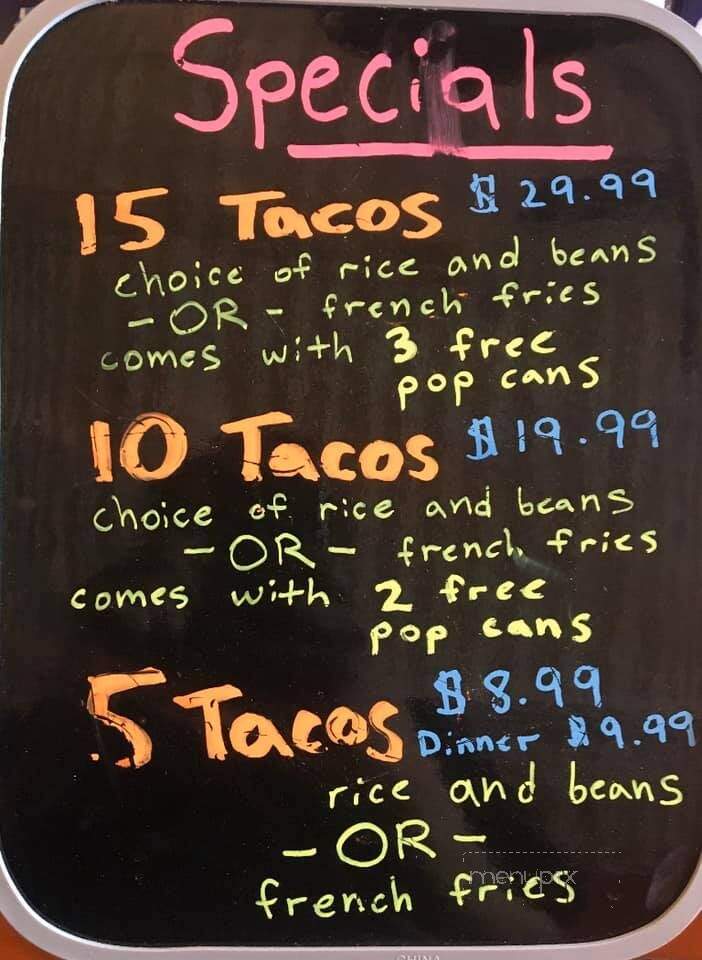 Specials
15 Tacos $ 29.99
choice of rice and beans
- OR - french fries
comes with 3 free
pop cans
10 Tacos $ 19.99
choice of rice and beans
- OR - french fries
comes with 2 free
pop cans
5 Tacos $ 8.99
Dinner $ 9.99
rice and beans
- OR -
french fries
menupix
CHINA